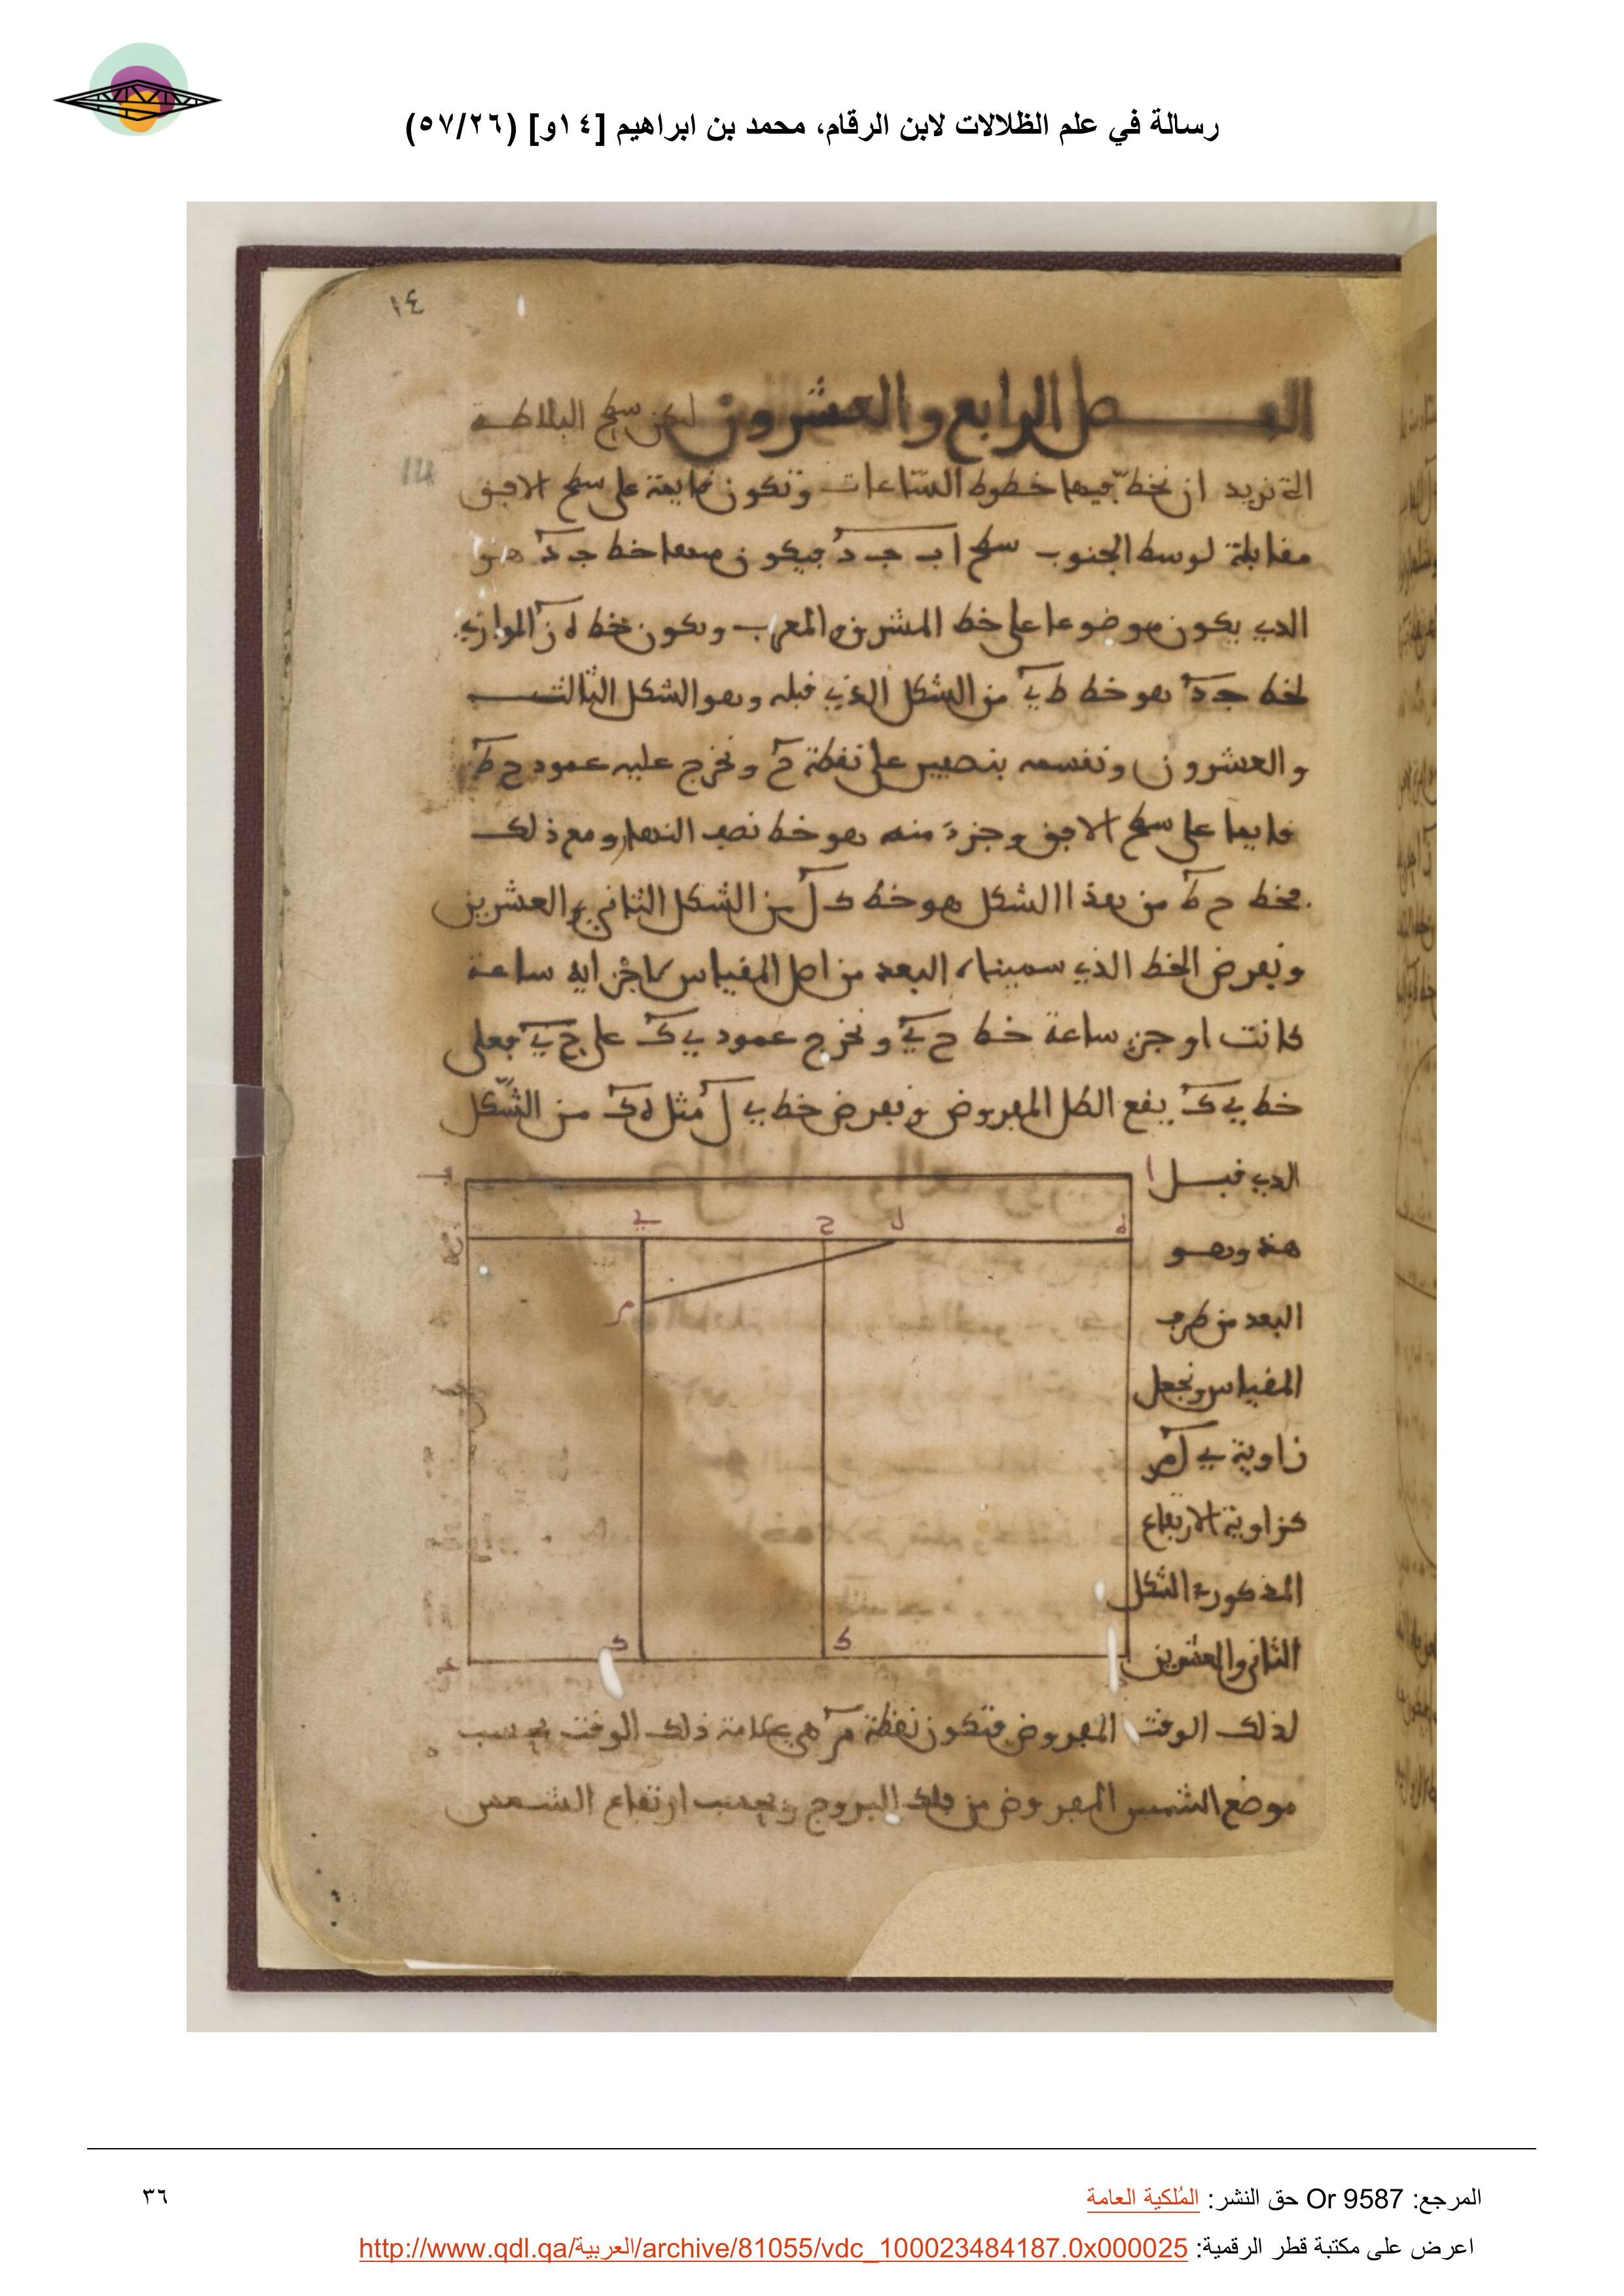 رسالة في علم الظلالات لابن الرقام، محمد بن ابراهيم [١٤و] (٥٧/٢٦)
١٤
الفصل الرابع والعشرون ليكن سطح البلاطة
14
التي نريد ان نخط فيها خطوط الساعات وتكون قايمة على سطح الافق
مقابلة لوسط الجنوب سطح ا ب ج د فيكون ضلعها خط ج د هو
الذي يكون موضوعا على خط المشرق والمغرب ويكون خط ه ز الموازي
لخط ج د هو خط ط ي من الشكل الذي قبله وهو الشكل الثالث
والعشرون ونقسمه بنصفين على نقطة ح ونخرج عليه عمود ح ط
قايما على سطح الافق وجزء منه هو خط نصف النهار ومع ذلك
فخط ح ط من هذا الشكل هو خط ك ل من الشكل الثاني والعشرين
ونفرض الخط الذي سميناه البعد من اصل المقياس لاجزاء اية ساعة
كانت او جزء ساعة خط ح ي ونخرج عمود ي ك على ح ي فعلى
خط ي ك يقع الظل المفروض ونفرض خط ي ل مثل ه ك من الشكل
الذي قبل
هذه وهو
البعد من طرف
المقياس ونجعل
زاوية ي ل م
كزاوية الارتفاع
المذكورة الشكل
الثاني والعشرين
ا
ب
ه
ل
ح
ي
ز
م
ط
ك
ج
لذلك الوقت المفروض فتكون نقطة م هي علامة ذلك الوقت بحسب
موضع الشمس المفروض من فلك البروج وبحسب ارتفاع الشمس
المرجع: Or 9587 حق النشر: المُلكية العامة
٣٦
اعرض على مكتبة قطر الرقمية: http://www.qdl.qa/العربية/archive/81055/vdc_100023484187.0x000025